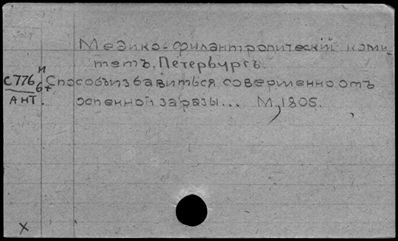 Медико-филантропический коми
тетъ, Петербургъ.
С776 и
6т Способъ избавиться совершенно отъ
АНТ. оспенной заразы... М, 1805.
X